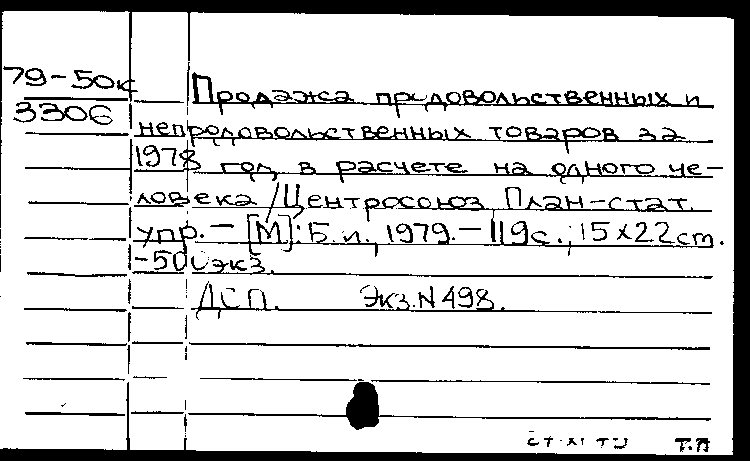 79-50к
3306
Продажа продовольственных и
непродовольственных товаров за
1978 год в расчете на одного че-
ловека / Центросоюз План-стат.
упр. - [М]: Б.и., 1979. - 119с.; 15х22см.
-500экз.
ДСП. Экз.N498.
Т.П